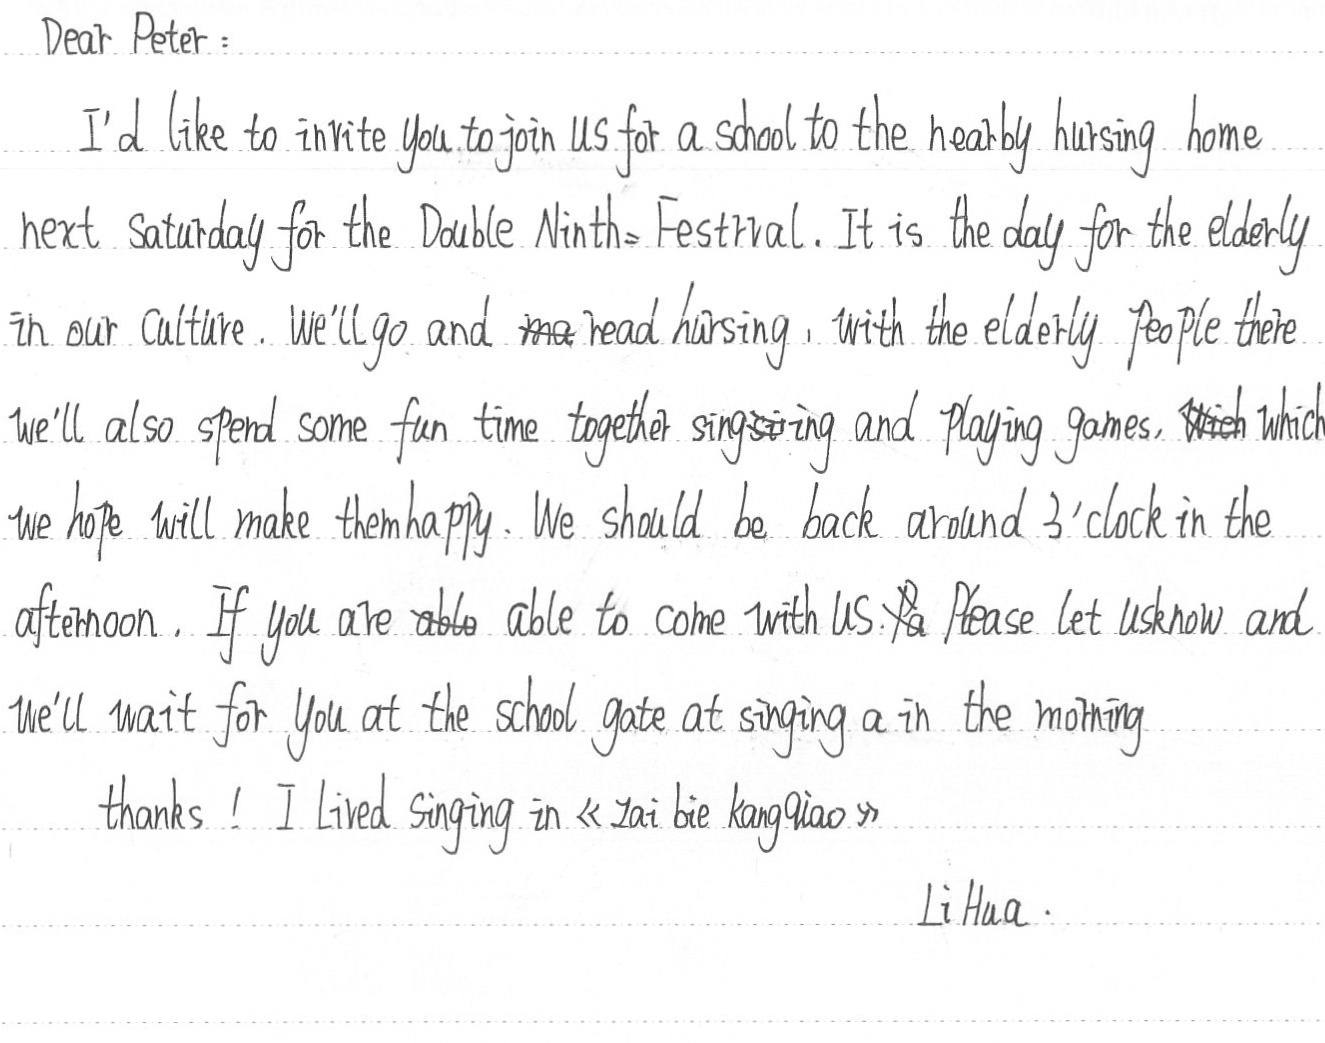 Dear Peter :
I'd like to invite you to join us for a school to the nearby nursing home
next Saturday for the Double Ninth= Festival. It is the day for the elderly
in our culture. We'll go and read nursing, with the elderly People there
we'll also spend some fun time together singing and playing games, which
we hope will make them happy. We should be back around 3'clock in the
afternoon. If you are able to come with us. Please let us know and
we'll wait for you at the school gate at singing a in the morning
thanks ! I Lived singing in « zai bie kangqiao »
Li Hua .